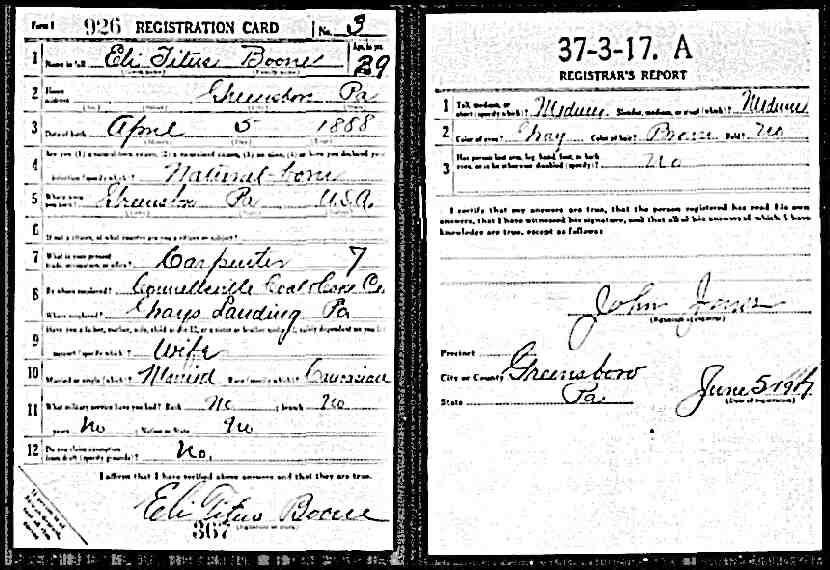 Form 1 926 REGISTRATION CARD No. 3
1 Name in full Eli Titus Boone Age, in yrs. 29
(Given name) (Family name)
2 Home address Greensboro Pa
(No.) (Street) (City) (State)
3 Date of birth April 5 1888
(Month) (Day) (Year)
4 Are you (1) a natural-born citizen, (2) a naturalized citizen, (3) an alien, (4) or have you declared your
intention (specify which)? Natural-born
5 Where were you born? Greensboro Pa U.S.A.
6 If not a citizen, of what country are you a citizen or subject?
7 What is your present trade, occupation, or office? Carpenter 7
8 By whom employed? Connellsville Coal & Coke Co
Where employed? Grays Landing Pa
9 Have you a father, mother, wife, child under 12, or a sister or brother under 12, solely dependent on you for
support (specify which)? Wife
10 Married or single (which)? Married Race (specify which)? Caucasian
11 What military service have you had? Rank No ; branch No
years No ; Nation or State No
12 Do you claim exemption from draft (specify grounds)? No.
I affirm that I have verified above answers and that they are true.
Eli Titus Boone
367 (Signature or mark)
37-3-17. A
REGISTRAR'S REPORT
1 Tall, medium, or short (specify which)? Medium Slender, medium, or stout (which)? Medium
2 Color of eyes? Gray Color of hair? Brown Bald? No
3 Has person lost arm, leg, hand, foot, or both eyes, or is he otherwise disabled (specify)? No
I certify that my answers are true, that the person registered has read his own
answers, that I have witnessed his signature, and that all of his answers of which I have
knowledge are true, except as follows:
John Jones
(Signature of registrar)
Precinct
City or County Greensboro
State Pa. June 5 1917
(Date of registration)